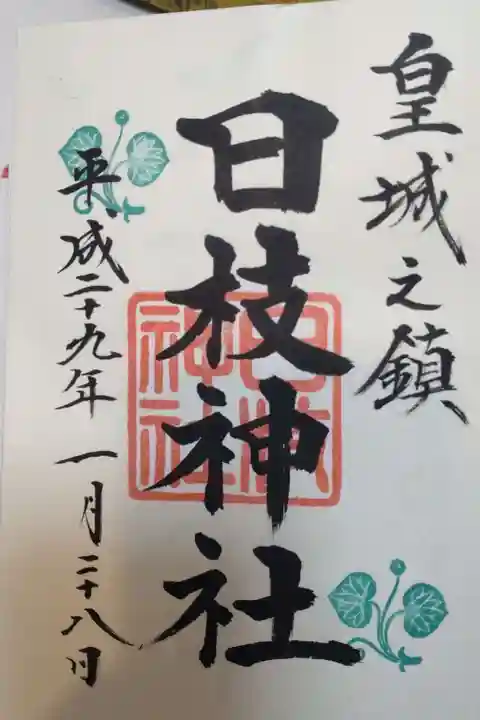 皇城之鎮
日枝神社
日枝神社
平成二十九年一月二十八日